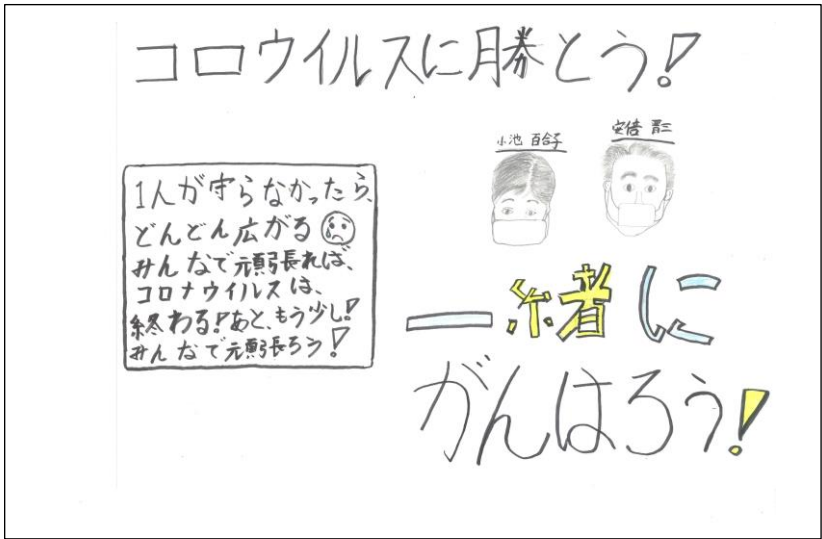 コロウイルスに勝とう!
小池 百合子
安倍 晋三
1人が守らなかったら、
どんどん広がる
みんなで元頑張れば、
コロナウイルスは、
終わる!あと、もう少し!
みんなで元頑張ろう!
一緒に
がんはろう!